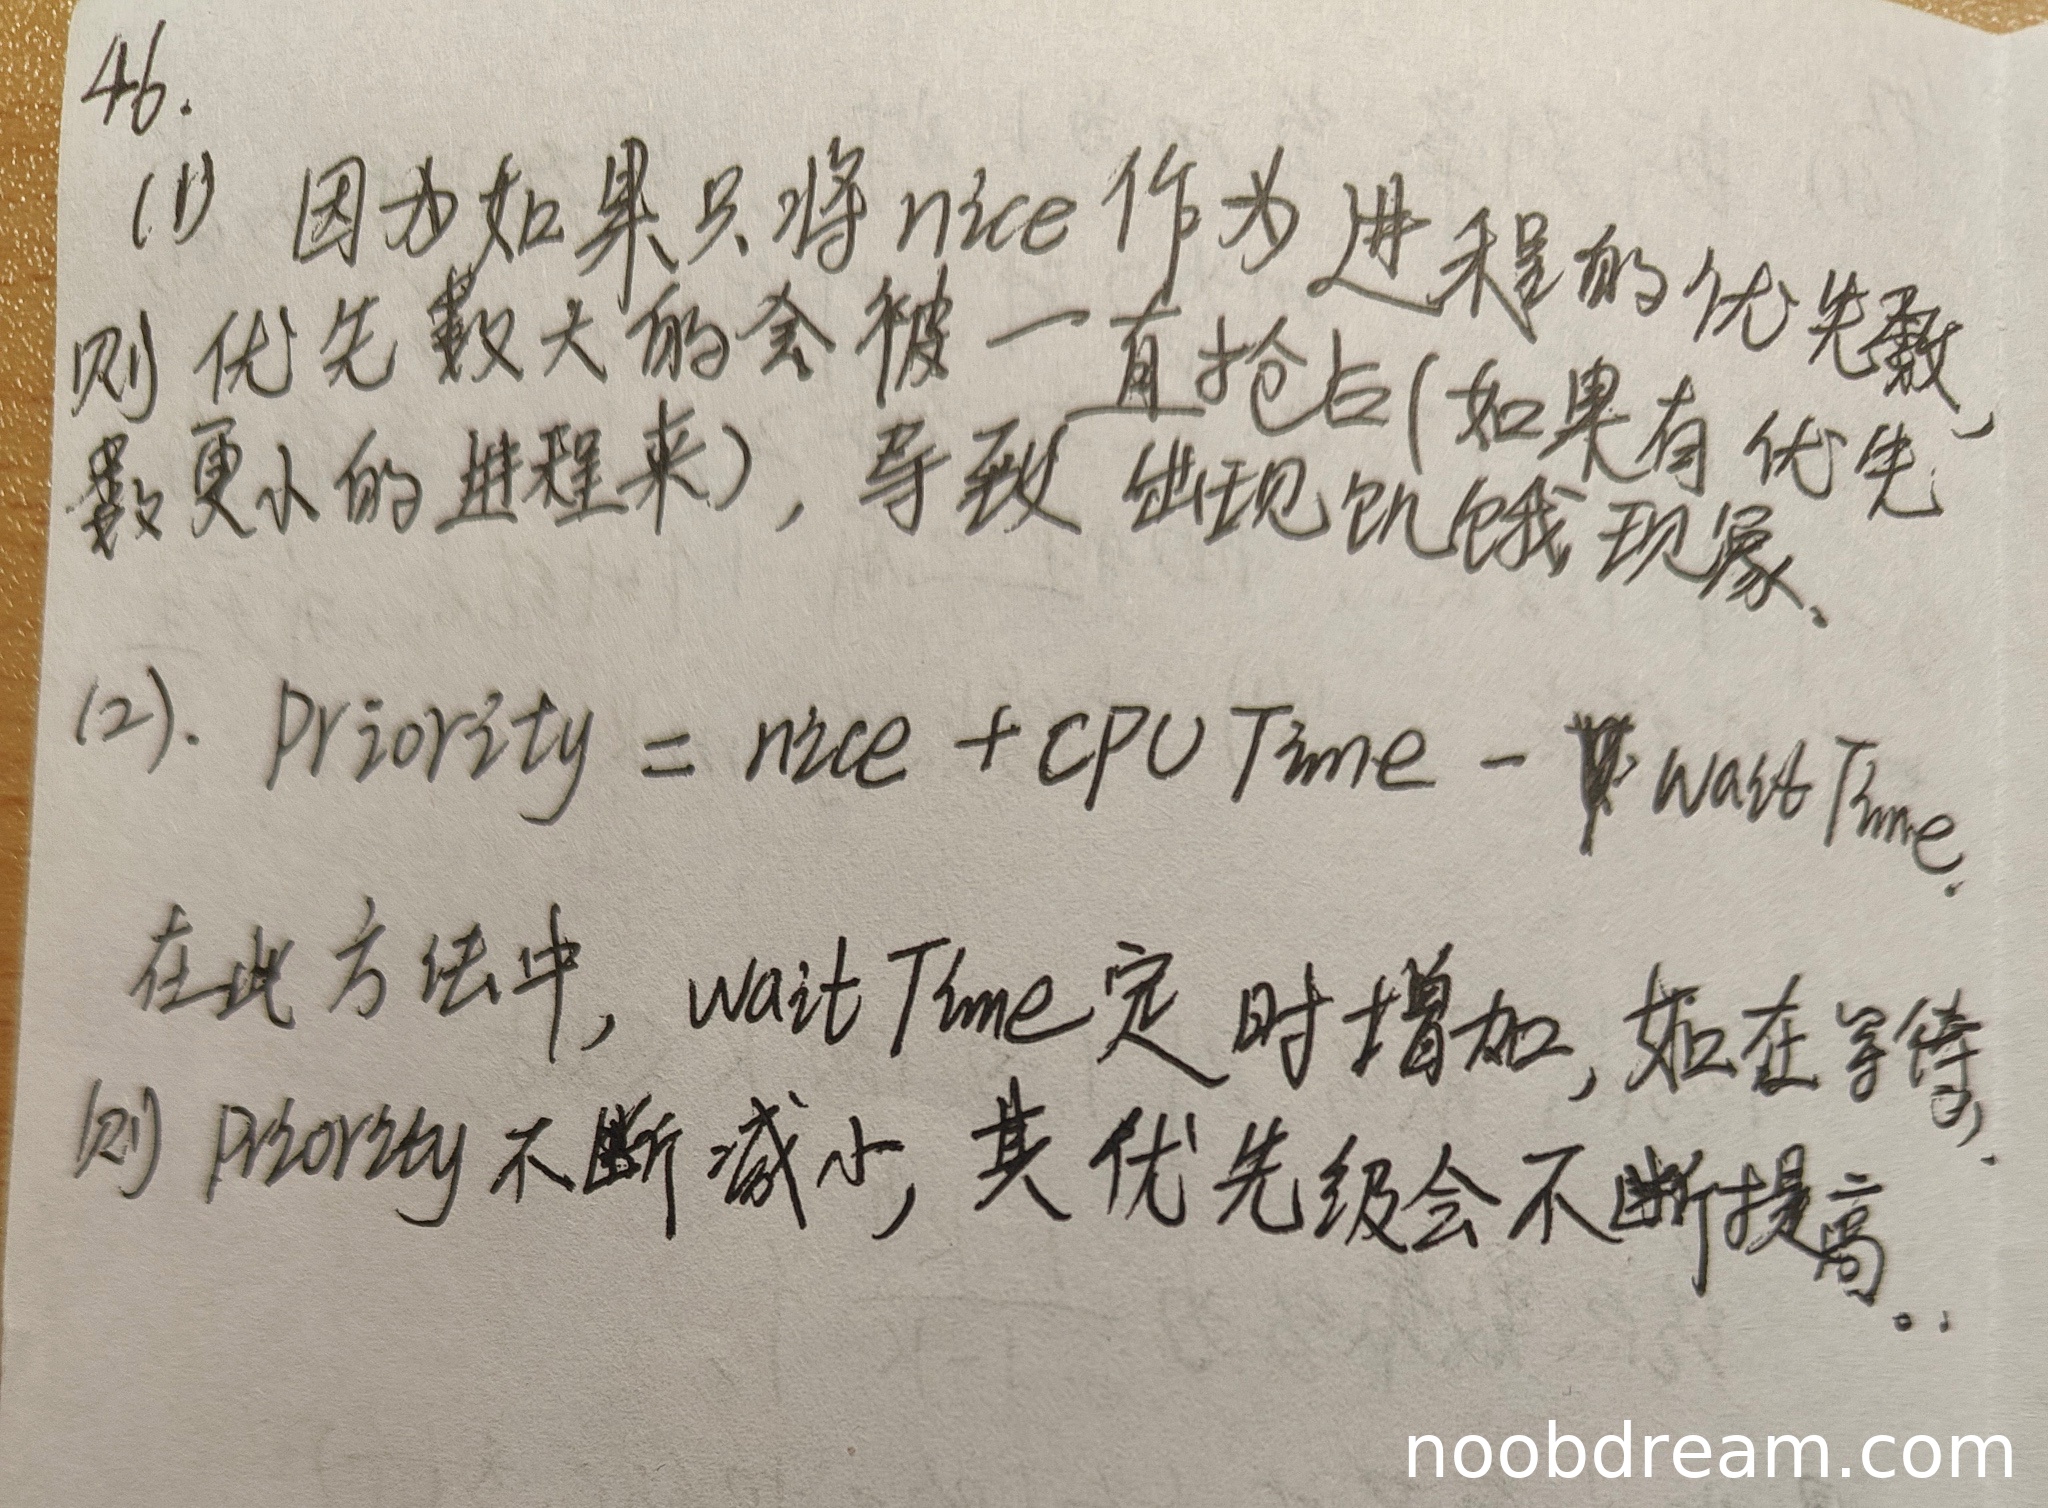 46.
(1) 因为如果只将nice作为进程的优先数,
则优先数大的会被一直抢占(如果有优先
数更小的进程来),导致出现饥饿现象.
(2). Priority = nice + CPU Time - wait Time.
在此方法中, wait Time定时增加,如在等待,
则Priority不断减小,其优先级会不断提高..
noobdream.com